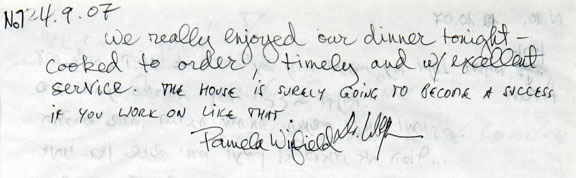 No7 24.9.07
We really enjoyed our dinner tonight -
cooked to order, timely and w/ excellent
service. THE HOUSE IS SURELY GOING TO BECOME A SUCCESS
IF YOU WORK ON LIKE THAT.
Pamela Winfield